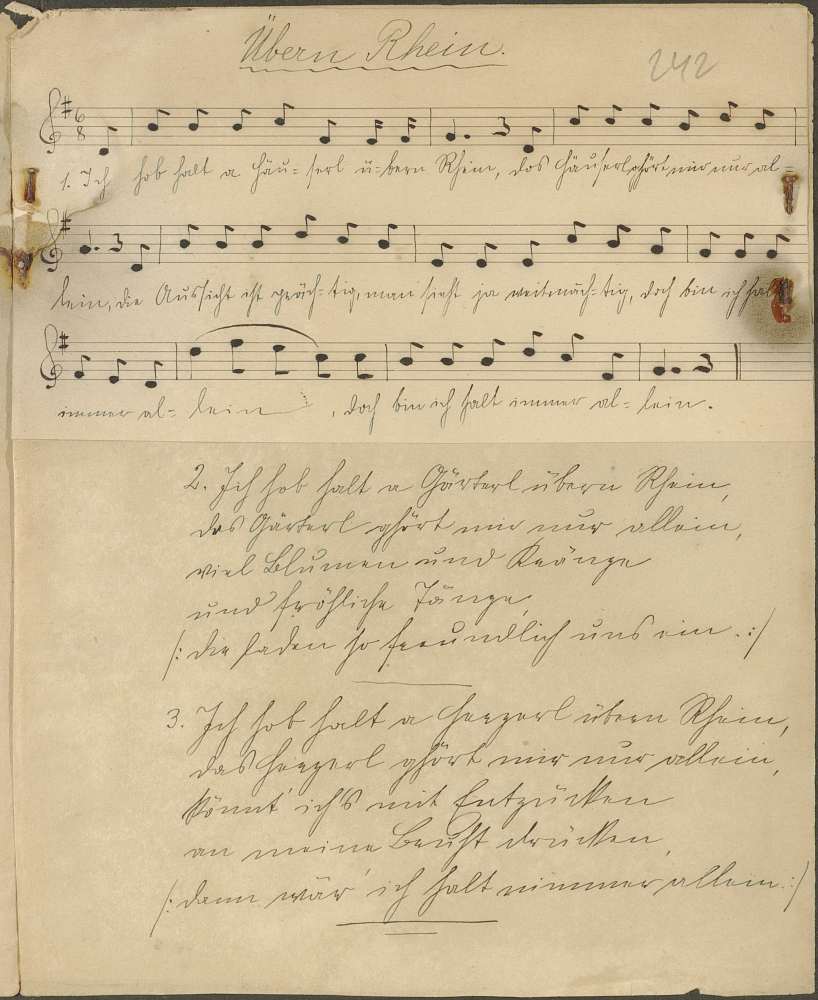 Übern Rhein.
242
6
8
1. Ich hob halt a Häu=serl ü=bern Rhein, das Häuserl ghört mir nur al=
lein, die Aussicht ist präch=tig, man sieht ja weitmäch=tig, doch bin ich halt
immer al= lein, doch bin ich halt immer al= lein.
2. Ich hob halt a Gärterl übern Rhein,
das Gärterl ghört mir nur allein,
viel Blumen und Kränze
und fröhliche Tänze,
/: die laden so freundlich uns ein. :/
3. Ich hob halt a Herzerl übern Rhein,
das Herzerl ghört mir nur allein,
könnt' ich's mit Entzücken
an meine Brust drücken,
/: dann wär' ich halt nimmer allein. :/